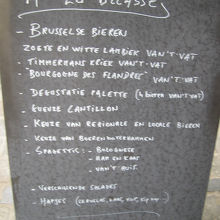 - BRUSSELSE BIEREN
ZOETE EN WITTE LAMBIEK VAN'T VAT
- TIMMERMANS KRIEK VAN'T VAT
- BOURGOGNE DES FLANDRES VAN'T VAT
- DEGUSTATIE PALETTE (4 BIEREN VAN'T VAT)
- GUEUZE CANTILLON
- KEUZE VAN REGIONALE EN LOCALE BIEREN
- KEUZE VAN BOERENBOTERHAMMEN
- SPAGETTI: - BOLOGNESE
- HAM EN KAAS
- VAN'T HUIS.
- VERSCHILLENDE SALADES
- HAPJES (CERVELA, KAAS,